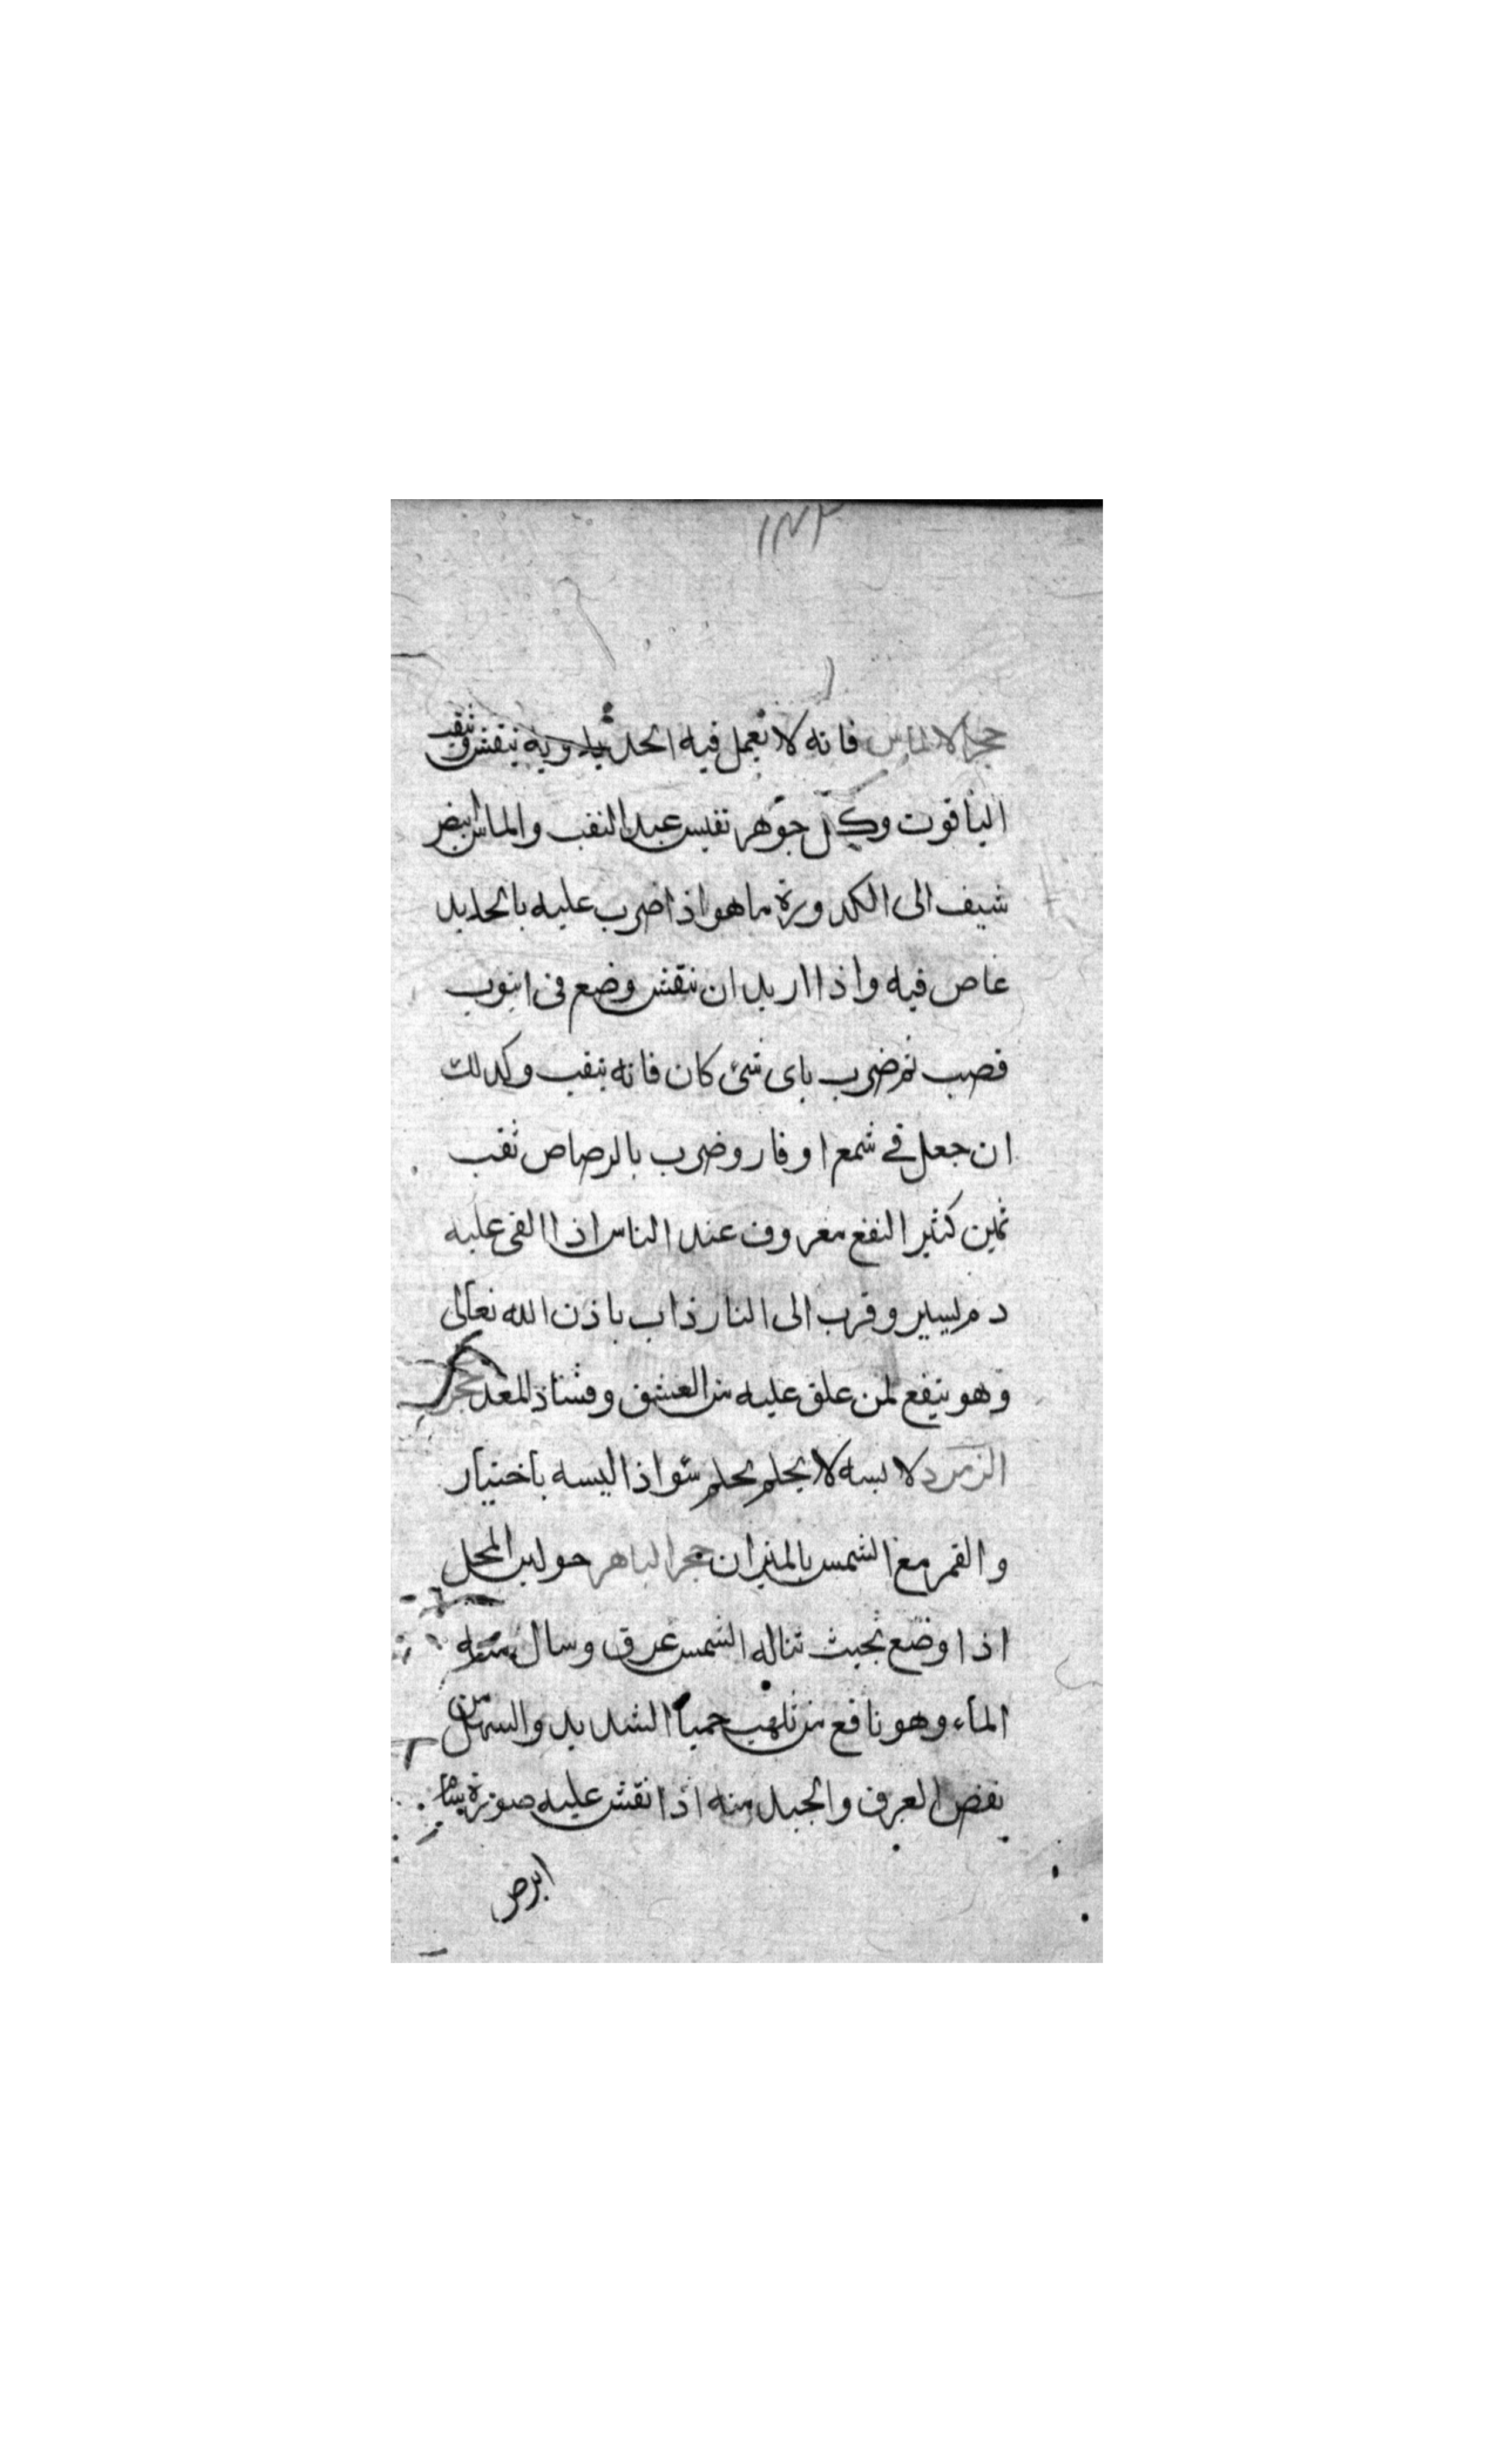 ١٧٣
حجر الالماس فانه لا تعمل فيه الحديد وبه ينقش وثقب
الياقوت وكل جوهر نفيس عبد النقب والماس ابيض
شيف الى الكدورة ما هو اذا ضرب عليه بالحديد
غاص فيه واذا اريد ان ينقش وضع في انبوب
قصب ثم ضرب باى شئ كان فانه يثقب وكذلك
ان جعل في شمع او قار وضرب بالرصاص ثقب
ثمين كثير النفع معروف عند الناس اذا القى عليه
دم يسير وقرب الى النار ذاب باذن الله تعالى
وهو ينفع لمن علق عليه من العشق وفساد المعد حجر
الزمرد لابسه لا يحلم بحلم سو اذا لبسه باختيار
والقمر مع الشمس بالميزان حجر الباهر حولين المحل
اذا وضع بحيث تناله الشمس عرق وسال منه
الماء وهو نافع من تلهب حميا الشديد والسهل من
بفض العرق والجيد منه اذا نقش عليه صورة سام
ابرص